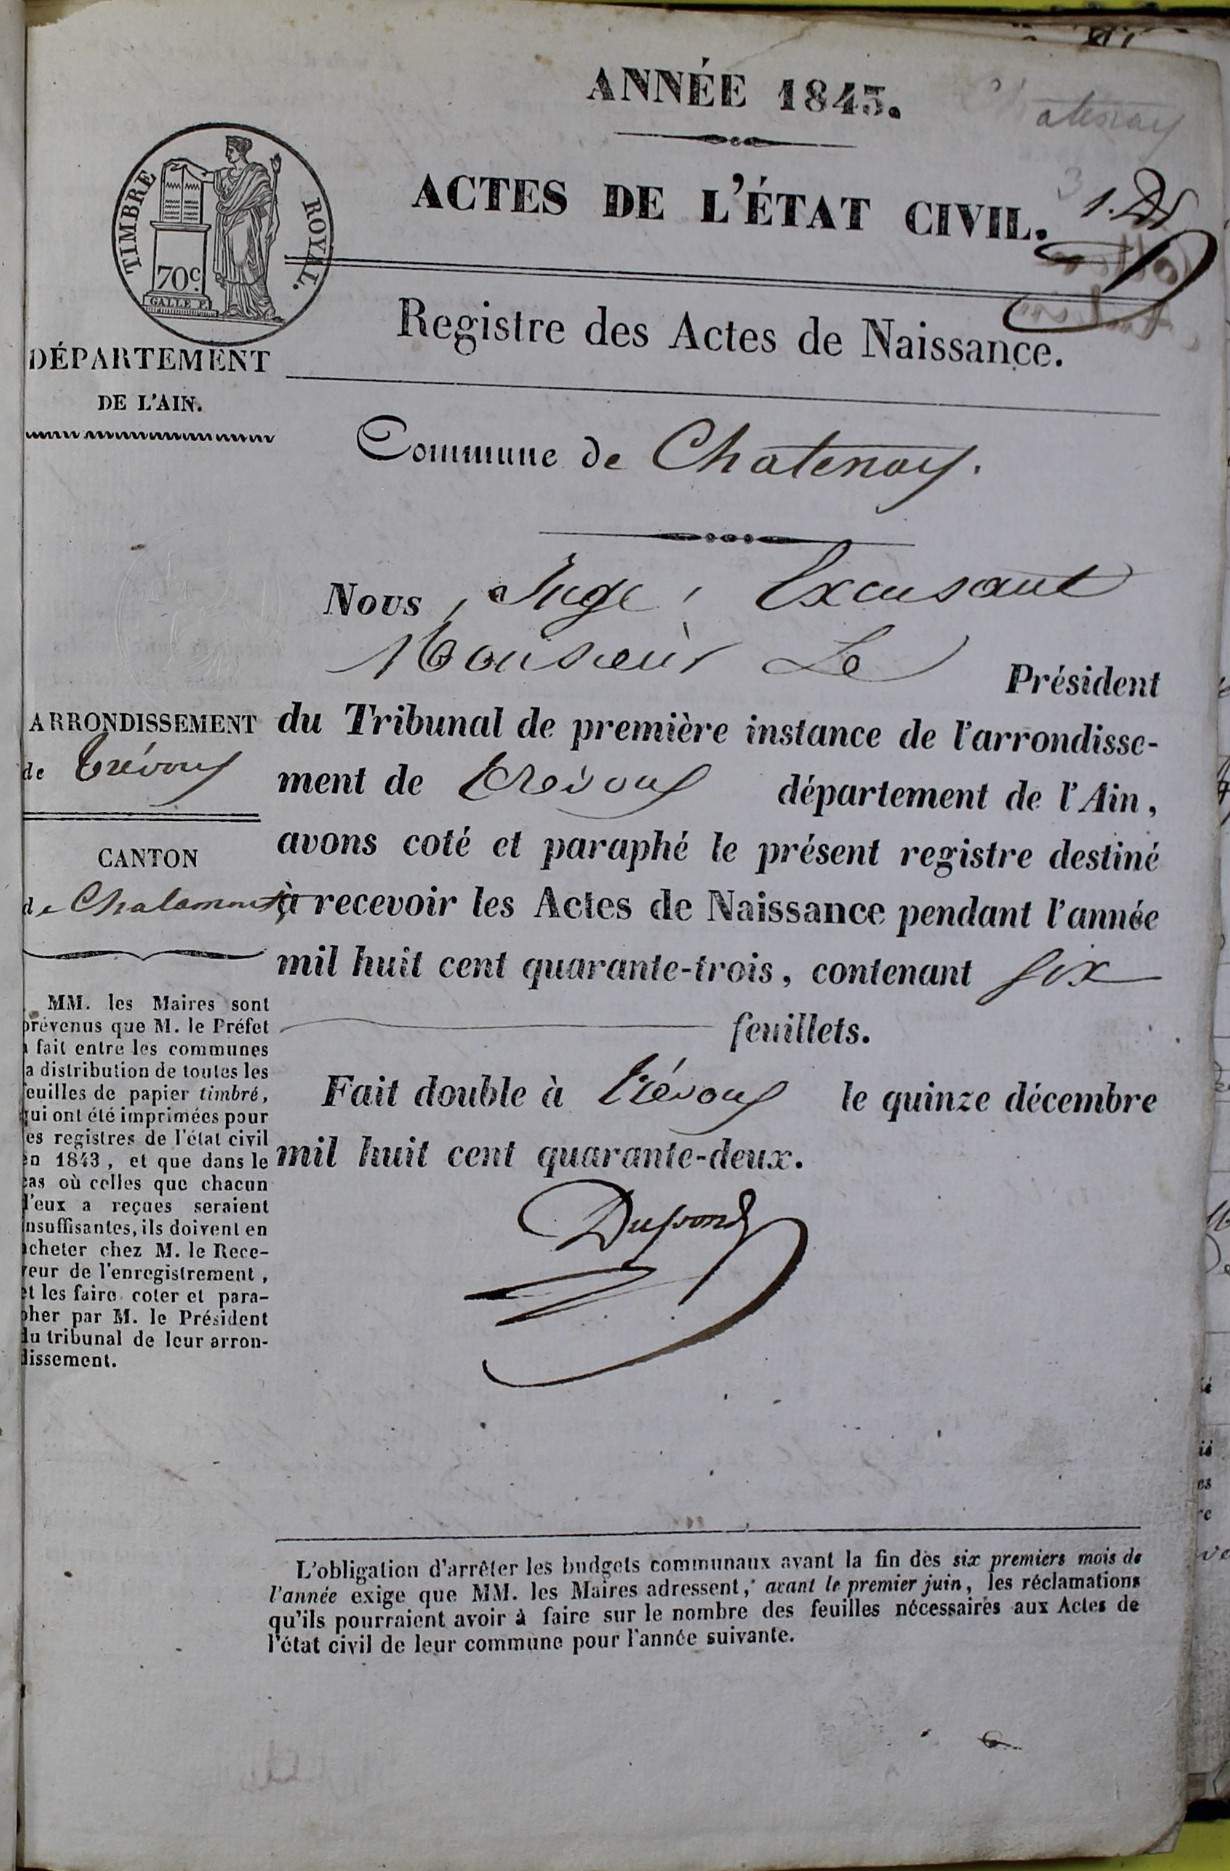 ANNÉE 1843.
Chatenay
ACTES DE L'ÉTAT CIVIL.
TIMBRE ROYAL.
70c.
GALLE F.
Registre des Actes de Naissance.
DÉPARTEMENT
DE L'AIN.
Commune de Chatenay.
Nous, Juge, Excusant
Monsieur Le Président
du Tribunal de première instance de l'arrondisse-
ment de Trévoux département de l'Ain,
avons coté et paraphé le présent registre destiné
à recevoir les Actes de Naissance pendant l'année
mil huit cent quarante-trois, contenant six
feuillets.
Fait double à Trévoux le quinze décembre
mil huit cent quarante-deux.
Dupond
ARRONDISSEMENT
de Trévoux
CANTON
de Chalamont
MM. les Maires sont
prévenus que M. le Préfet
a fait entre les communes
la distribution de toutes les
feuilles de papier timbré,
qui ont été imprimées pour
les registres de l'état civil
en 1843, et que dans le
cas où celles que chacun
d'eux a reçues seraient
insuffisantes, ils doivent en
acheter chez M. le Rece-
veur de l'enregistrement,
et les faire coter et para-
pher par M. le Président
du tribunal de leur arron-
dissement.
L'obligation d'arrêter les budgets communaux avant la fin des six premiers mois de
l'année exige que MM. les Maires adressent, avant le premier juin, les réclamations
qu'ils pourraient avoir à faire sur le nombre des feuilles nécessaires aux Actes de
l'état civil de leur commune pour l'année suivante.